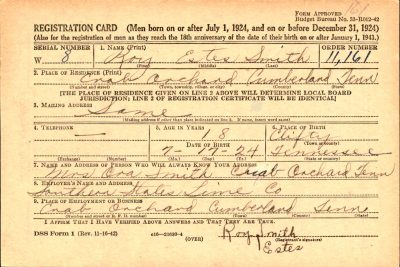 FORM APPROVED
Budget Bureau No. 33-R012-42
REGISTRATION CARD (Men born on or after July 1, 1924, and on or before December 31, 1924)
(Also for the registration of men as they reach the 18th anniversary of the date of their birth on or after January 1, 1943.)
SERIAL NUMBER
1. NAME (Print)
ORDER NUMBER
W 8 Roy Estes Smith 11,161
(First) (Middle) (Last)
2. PLACE OF RESIDENCE (Print)
Crab Orchard Cumberland Tenn
(Number and street) (Town, township, village, or city) (County) (State)
[THE PLACE OF RESIDENCE GIVEN ON LINE 2 ABOVE WILL DETERMINE LOCAL BOARD
JURISDICTION; LINE 2 OF REGISTRATION CERTIFICATE WILL BE IDENTICAL]
3. MAILING ADDRESS
Same
[Mailing address if other than place indicated on line 2. If same, insert word same]
4. TELEPHONE
5. AGE IN YEARS
6. PLACE OF BIRTH
18
Clifty
(Town or county)
DATE OF BIRTH
7-17-24 Tennessee
(Exchange) (Number) (Mo.) (Day) (Yr.) (State or country)
7. NAME AND ADDRESS OF PERSON WHO WILL ALWAYS KNOW YOUR ADDRESS
Mrs Ora Smith Crab Orchard Tenn
8. EMPLOYER'S NAME AND ADDRESS
Southern States Lime Co
9. PLACE OF EMPLOYMENT OR BUSINESS
Crab Orchard Cumberland Tenn
(Number and street or R. F. D. number) (Town) (County) (State)
I AFFIRM THAT I HAVE VERIFIED ABOVE ANSWERS AND THAT THEY ARE TRUE.
DSS Form 1 (Rev. 11-16-42)
(OVER)
Roy Smith
(Registrant's signature)
Estes